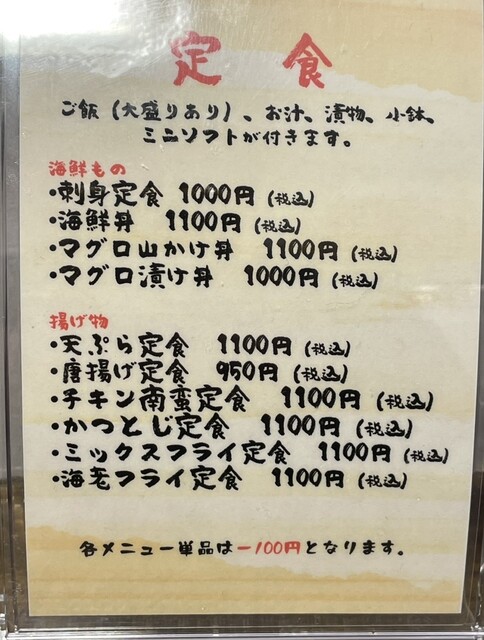 定食
ご飯（大盛りあり）、お汁、漬物、小鉢、
ミニソフトが付きます。
海鮮もの
・刺身定食 1000円（税込）
・海鮮丼 1100円（税込）
・マグロ山かけ丼 1100円（税込）
・マグロ漬け丼 1000円（税込）
揚げ物
・天ぷら定食 1100円（税込）
・唐揚げ定食 950円（税込）
・チキン南蛮定食 1100円（税込）
・かつとじ定食 1100円（税込）
・ミックスフライ定食 1100円（税込）
・海老フライ定食 1100円（税込）
各メニュー単品は－100円となります。